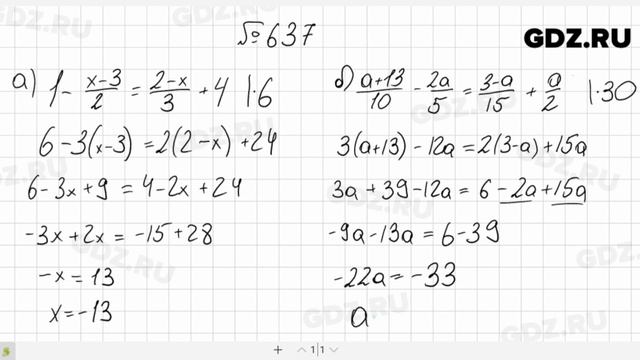 № 637
GDZ.RU
а) 1 - (x-3)/2 = (2-x)/3 + 4 |·6
6 - 3(x-3) = 2(2-x) + 24
6 - 3x + 9 = 4 - 2x + 24
-3x + 2x = -15 + 28
-x = 13
x = -13
б) (a+13)/10 - 2a/5 = (3-a)/15 + a/2 |·30
3(a+13) - 12a = 2(3-a) + 15a
3a + 39 - 12a = 6 - 2a + 15a
-9a - 13a = 6 - 39
-22a = -33
a
1|1